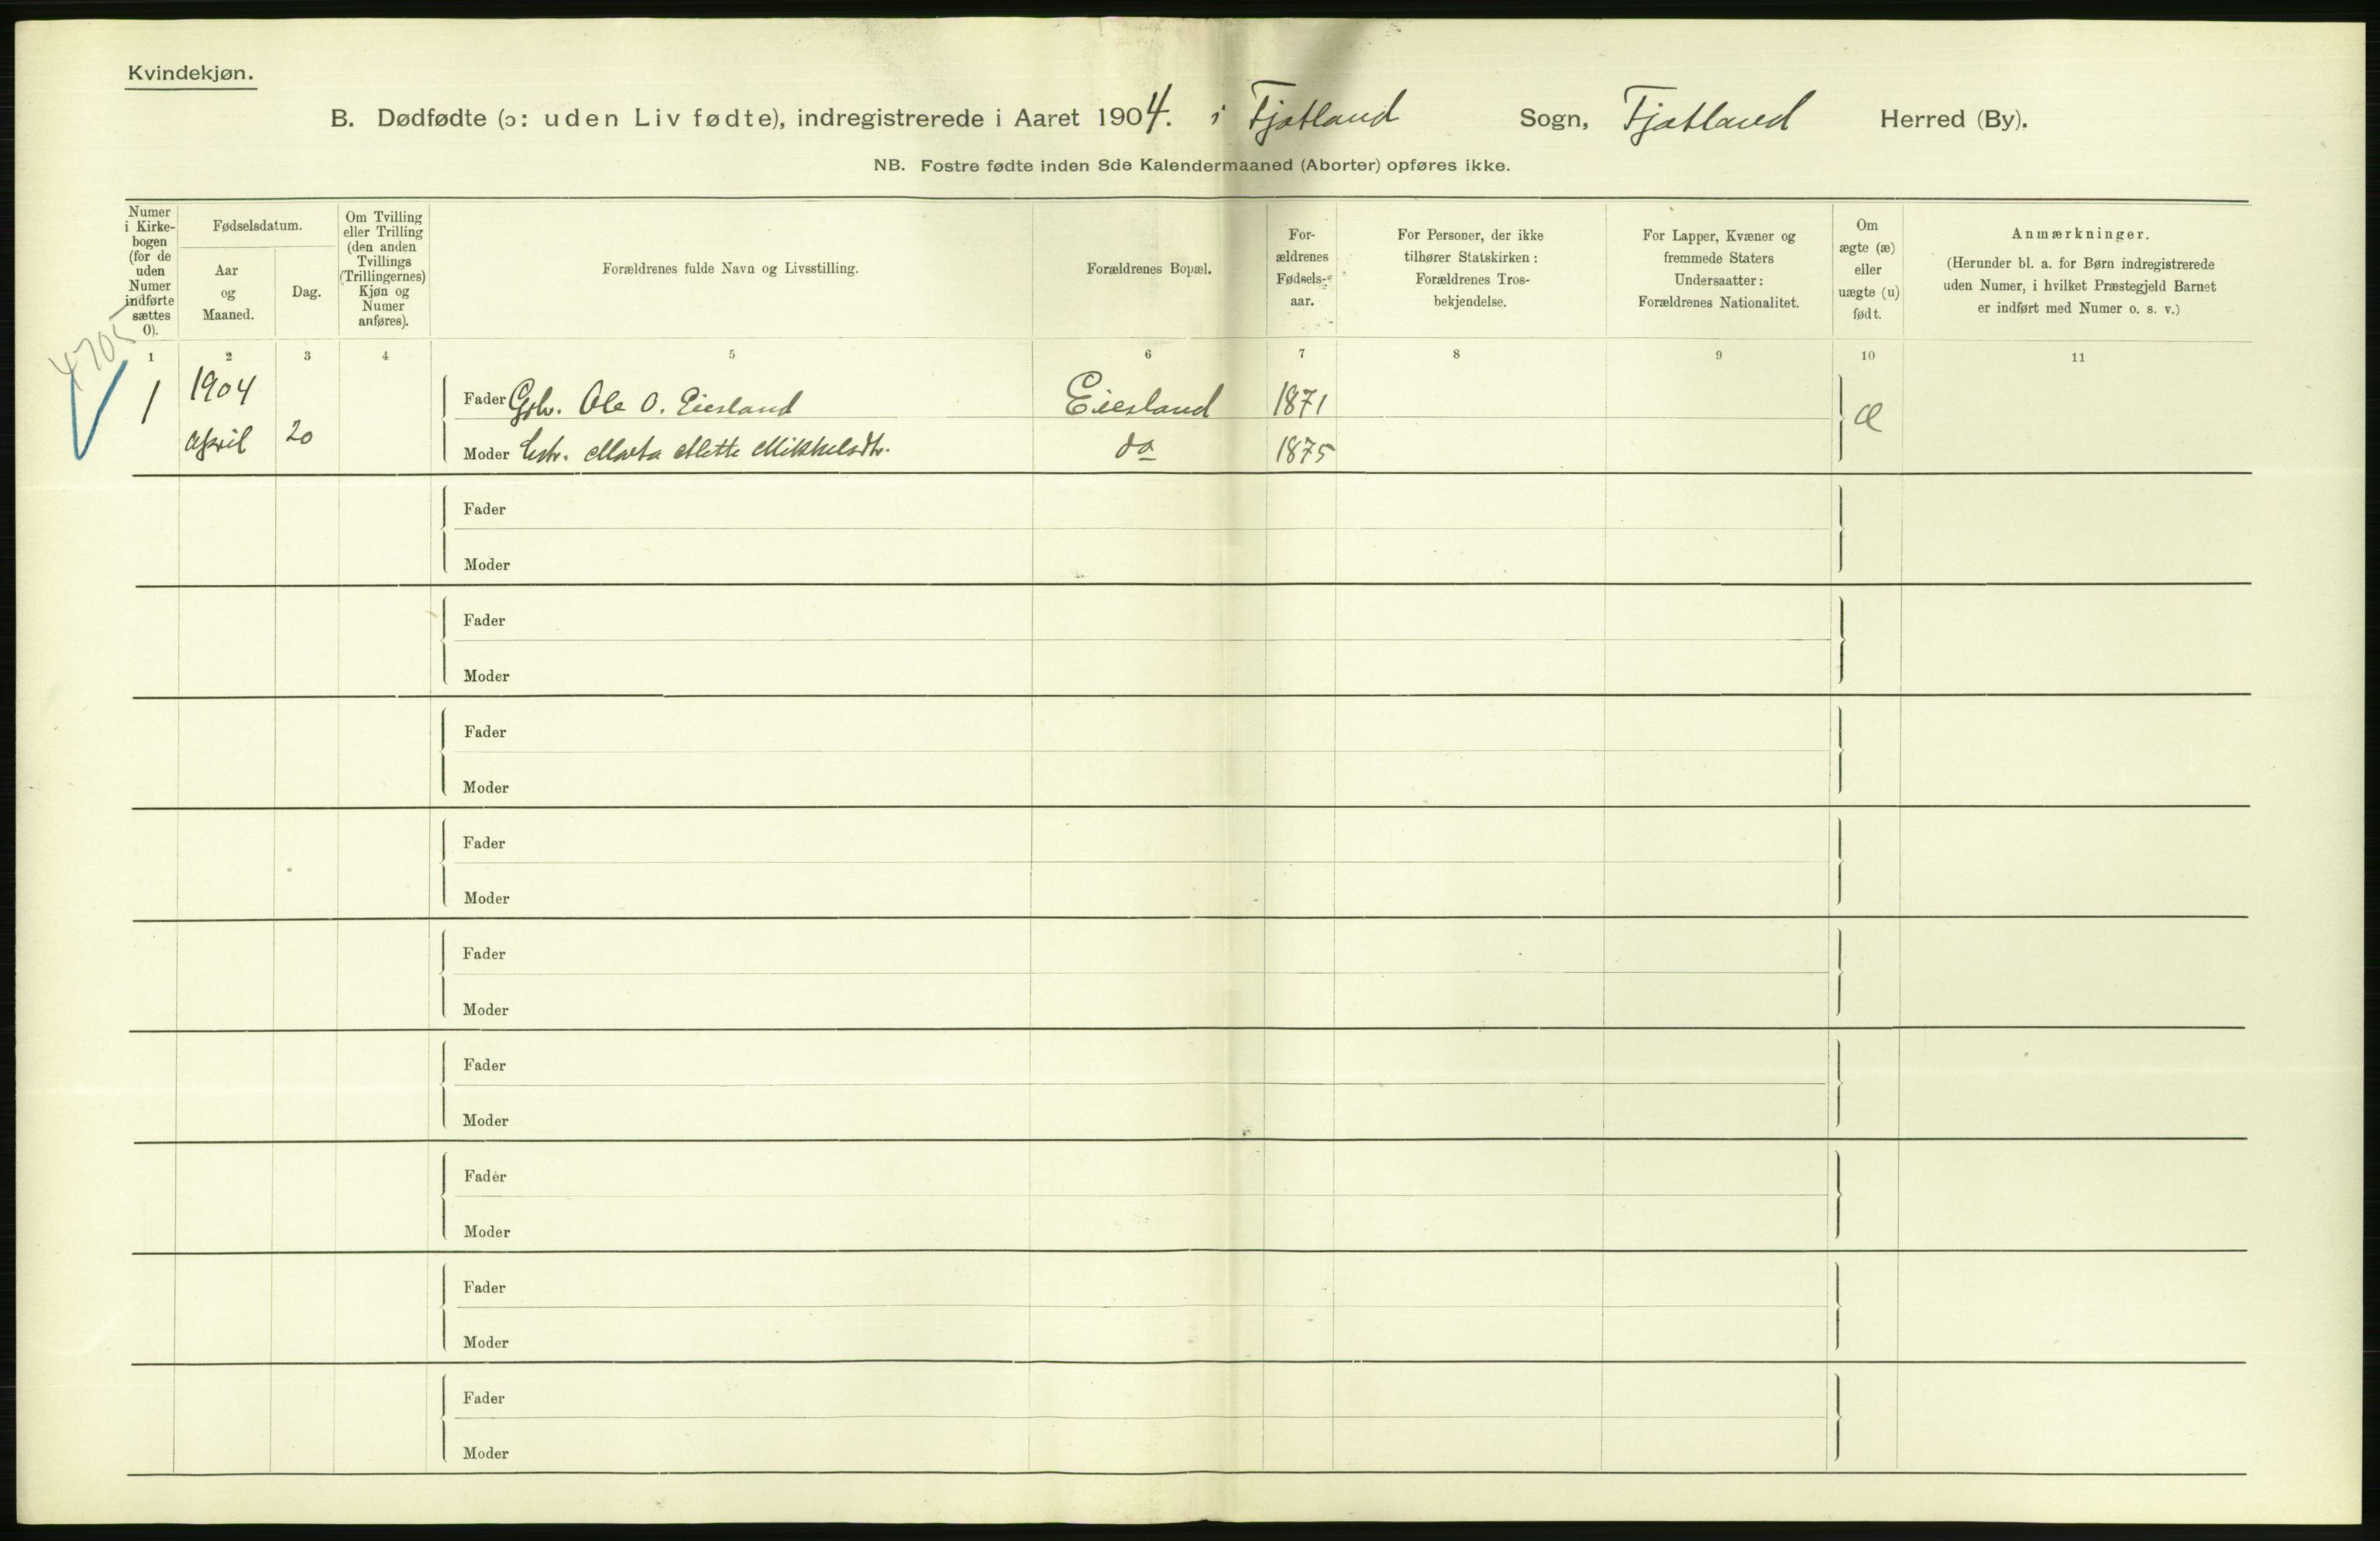 Kvindekjøn.
B. Dødfødte (ɔ: uden Liv fødte), indregistrerede i Aaret 1904. i Fjotland Sogn, Fjotland Herred (By).
NB. Fostre fødte inden 8de Kalendermaaned (Aborter) opføres ikke.
Numer
i Kirke-
bogen
(for de
uden
Numer
indførte
sættes
0).
Fødselsdatum.
Aar
og
Maaned.
Dag.
Om Tvilling
eller Trilling
(den anden
Tvillings
(Trillingernes)
Kjøn og
Numer
anføres).
Forældrenes fulde Navn og Livsstilling.
Forældrenes Bopæl.
For-
ældrenes
Fødsels-
aar.
For Personer, der ikke
tilhører Statskirken:
Forældrenes Tros-
bekjendelse.
For Lapper, Kvæner og
fremmede Staters
Undersaatter:
Forældrenes Nationalitet.
Om
ægte (æ)
eller
uægte (u)
født.
Anmærkninger.
(Herunder bl. a. for Børn indregistrerede
uden Numer, i hvilket Præstegjeld Barnet
er indført med Numer o. s. v.)
4705
1 2 3 4 5 6 7 8 9 10 11
1 1904 Fader Ole O. Eiesland Eiesland 1871 æ
April 20 Moder Marta Mette Mikkelsdtr. do 1875
Fader
Moder
Fader
Moder
Fader
Moder
Fader
Moder
Fader
Moder
Fader
Moder
Fader
Moder
Fader
Moder
Fader
Moder